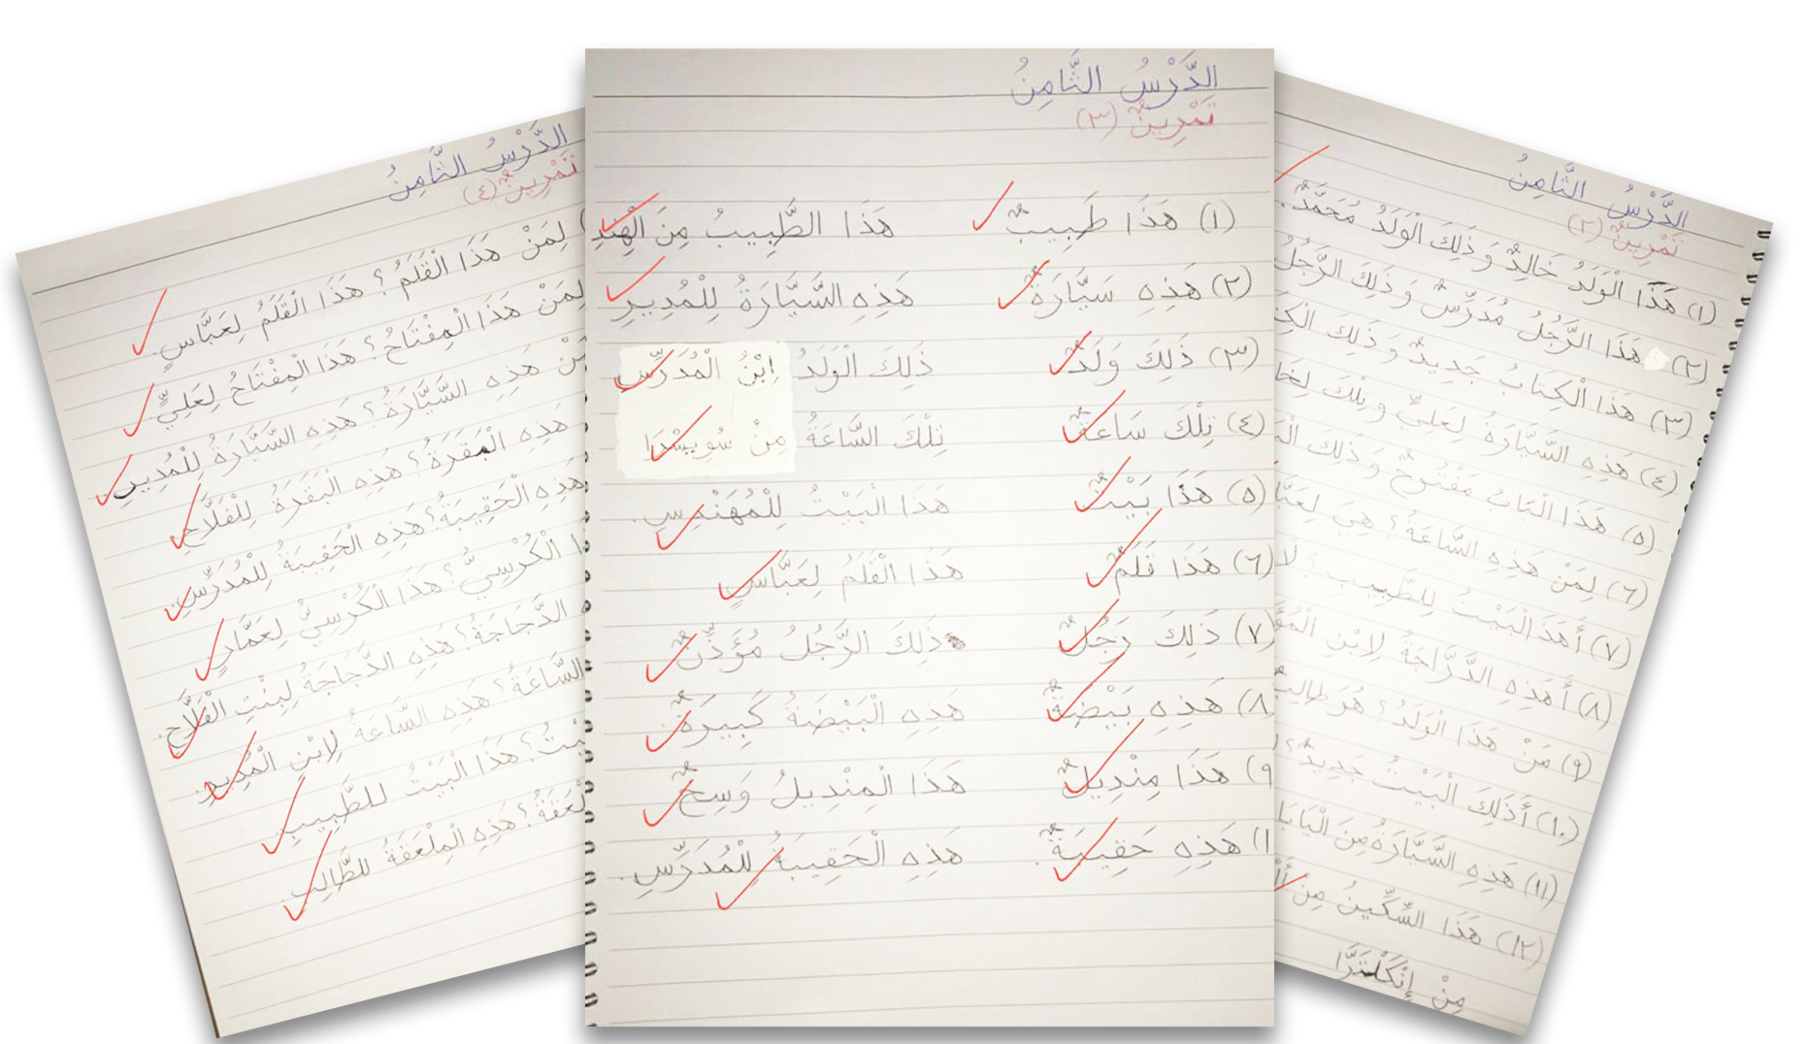 الدَّرْسُ الثَّامِنُ
تَمْرِينٌ (٢)
(١) هَذَا الْوَلَدُ خَالِدٌ وَ ذَلِكَ الْوَلَدُ مُحَمَّدٌ.
(٢) هَذَا الرَّجُلُ مُدَرِّسٌ وَ ذَلِكَ الرَّجُلُ
(٣) هَذَا الْكِتَابُ جَدِيدٌ وَ ذَلِكَ
(٤) هَذِهِ السَّيَّارَةُ لِعَلِيٍّ وَ تِلْكَ
(٥) هَذَا الْبَابُ مَفْتُوحٌ وَ ذَلِكَ
(٦) لِمَنْ هَذِهِ السَّاعَةُ؟ هِيَ
(٧) أَهَذَا الْبَيْتُ لِلطَّبِيبِ؟ لا
(٨) أَهَذِهِ الدَّرَّاجَةُ لِابْنِ
(٩) مَنْ هَذَا الْوَلَدُ؟ هُوَ طَالِبٌ
(١٠) أَذَلِكَ الْبَيْتُ جَدِيدٌ؟
(١١) هَذِهِ السَّيَّارَةُ مِنَ
(١٢) هَذَا السِّكِّينُ مِنْ
مِنْ إِنْكَلْتَرَّا
الدَّرْسُ الثَّامِنُ
تَمْرِينٌ (٣)
(١) هَذَا طَبِيبٌ هَذَا الطَّبِيبُ مِنَ الْهِنْدِ
(٢) هَذِهِ سَيَّارَةٌ هَذِهِ السَّيَّارَةُ لِلْمُدِيرِ
(٣) ذَلِكَ وَلَدٌ ذَلِكَ الْوَلَدُ اِبْنُ الْمُدَرِّسِ
(٤) تِلْكَ سَاعَةٌ تِلْكَ السَّاعَةُ مِنْ سُوِيسْرَا
(٥) هَذَا بَيْتٌ هَذَا الْبَيْتُ لِلْمُهَنْدِسِ.
(٦) هَذَا قَلَمٌ هَذَا الْقَلَمُ لِعَبَّاسٍ
(٧) ذَلِكَ رَجُلٌ ذَلِكَ الرَّجُلُ مُؤَذِّنٌ
(٨ هَذِهِ بَيْضَةٌ هَذِهِ الْبَيْضَةُ كَبِيرَةٌ
٩) هَذَا مِنْدِيلٌ هَذَا الْمِنْدِيلُ وَسِخٌ
١) هَذِهِ حَقِيبَةٌ. هَذِهِ الْحَقِيبَةُ لِلْمُدَرِّسِ.
الدَّرْسُ الثَّامِنُ
تَمْرِينٌ (٤)
لِمَنْ هَذَا الْقَلَمُ؟ هَذَا الْقَلَمُ لِعَبَّاسٍ.
لِمَنْ هَذَا الْمِفْتَاحُ؟ هَذَا الْمِفْتَاحُ لِعَلِيٍّ.
هَذِهِ السَّيَّارَةُ؟ هَذِهِ السَّيَّارَةُ لِلْمُدِيرِ.
هَذِهِ الْبَقَرَةُ؟ هَذِهِ الْبَقَرَةُ لِلْفَلَّاحِ
هَذِهِ الْحَقِيبَةُ؟ هَذِهِ الْحَقِيبَةُ لِلْمُدَرِّسِ.
الْكُرْسِيُّ؟ هَذَا الْكُرْسِيُّ لِعَمَّارٍ
الدَّجَاجَةُ؟ هَذِهِ الدَّجَاجَةُ لِبِنْتِ الْفَلَّاحِ.
السَّاعَةُ؟ هَذِهِ السَّاعَةُ لِابْنِ الْمُدِيرِ.
هَذَا الْبَيْتُ لِلطَّبِيبِ.
هَذِهِ الْمِلْعَقَةُ لِلطَّالِبِ.